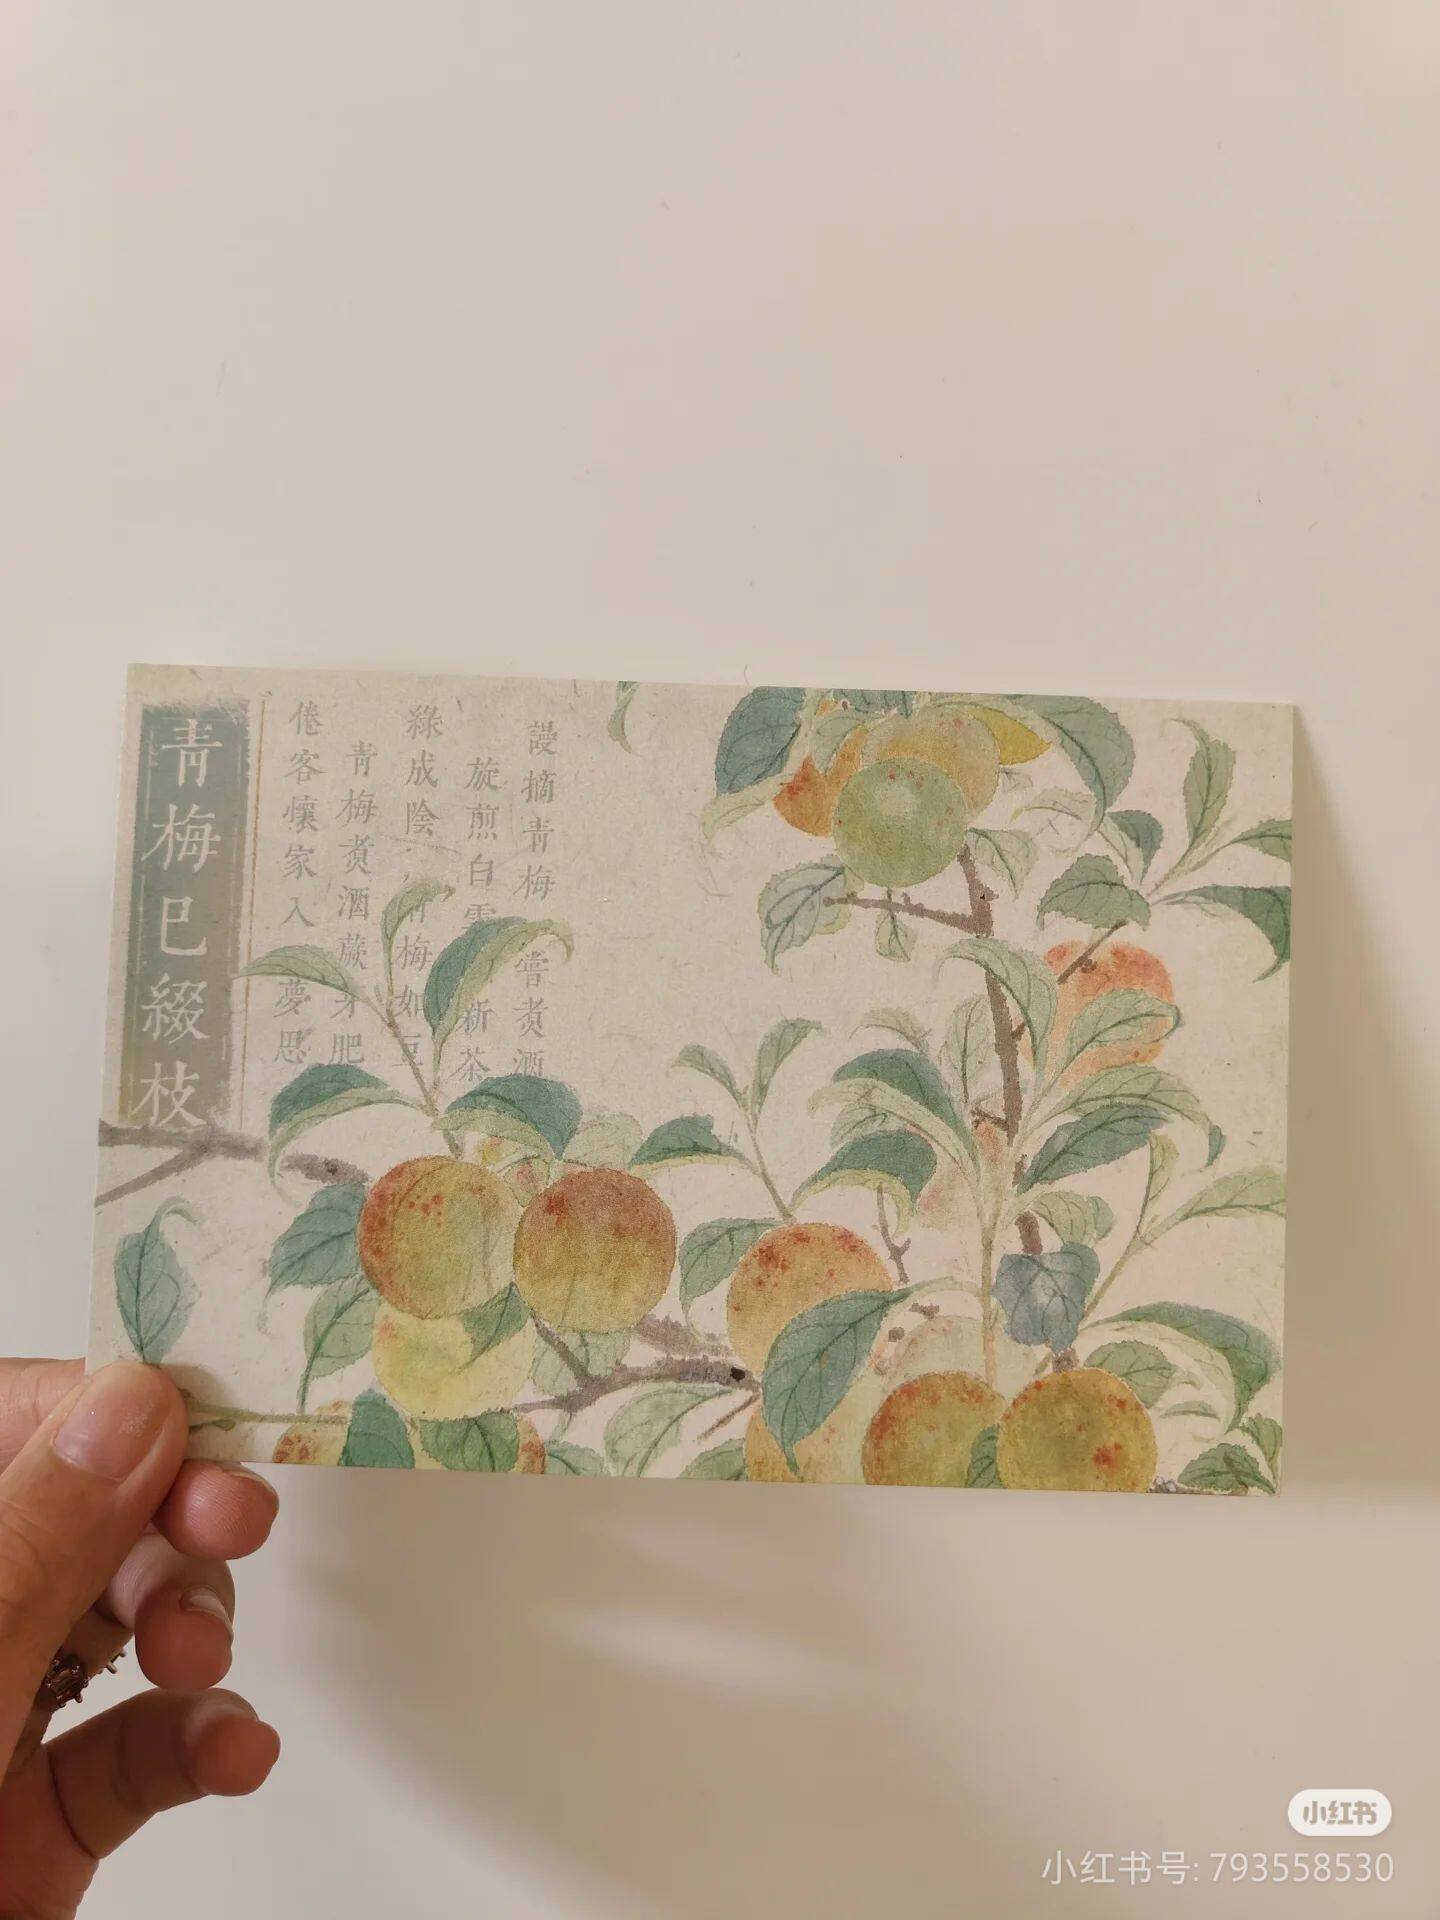 謾摘青梅嘗煮酒
旋煎白雪新茶
綠成陰青梅如豆
青梅煮酒蕨芽肥
倦客懷家入夢思
青梅已綴枝
小红书
小红书号: 793558530